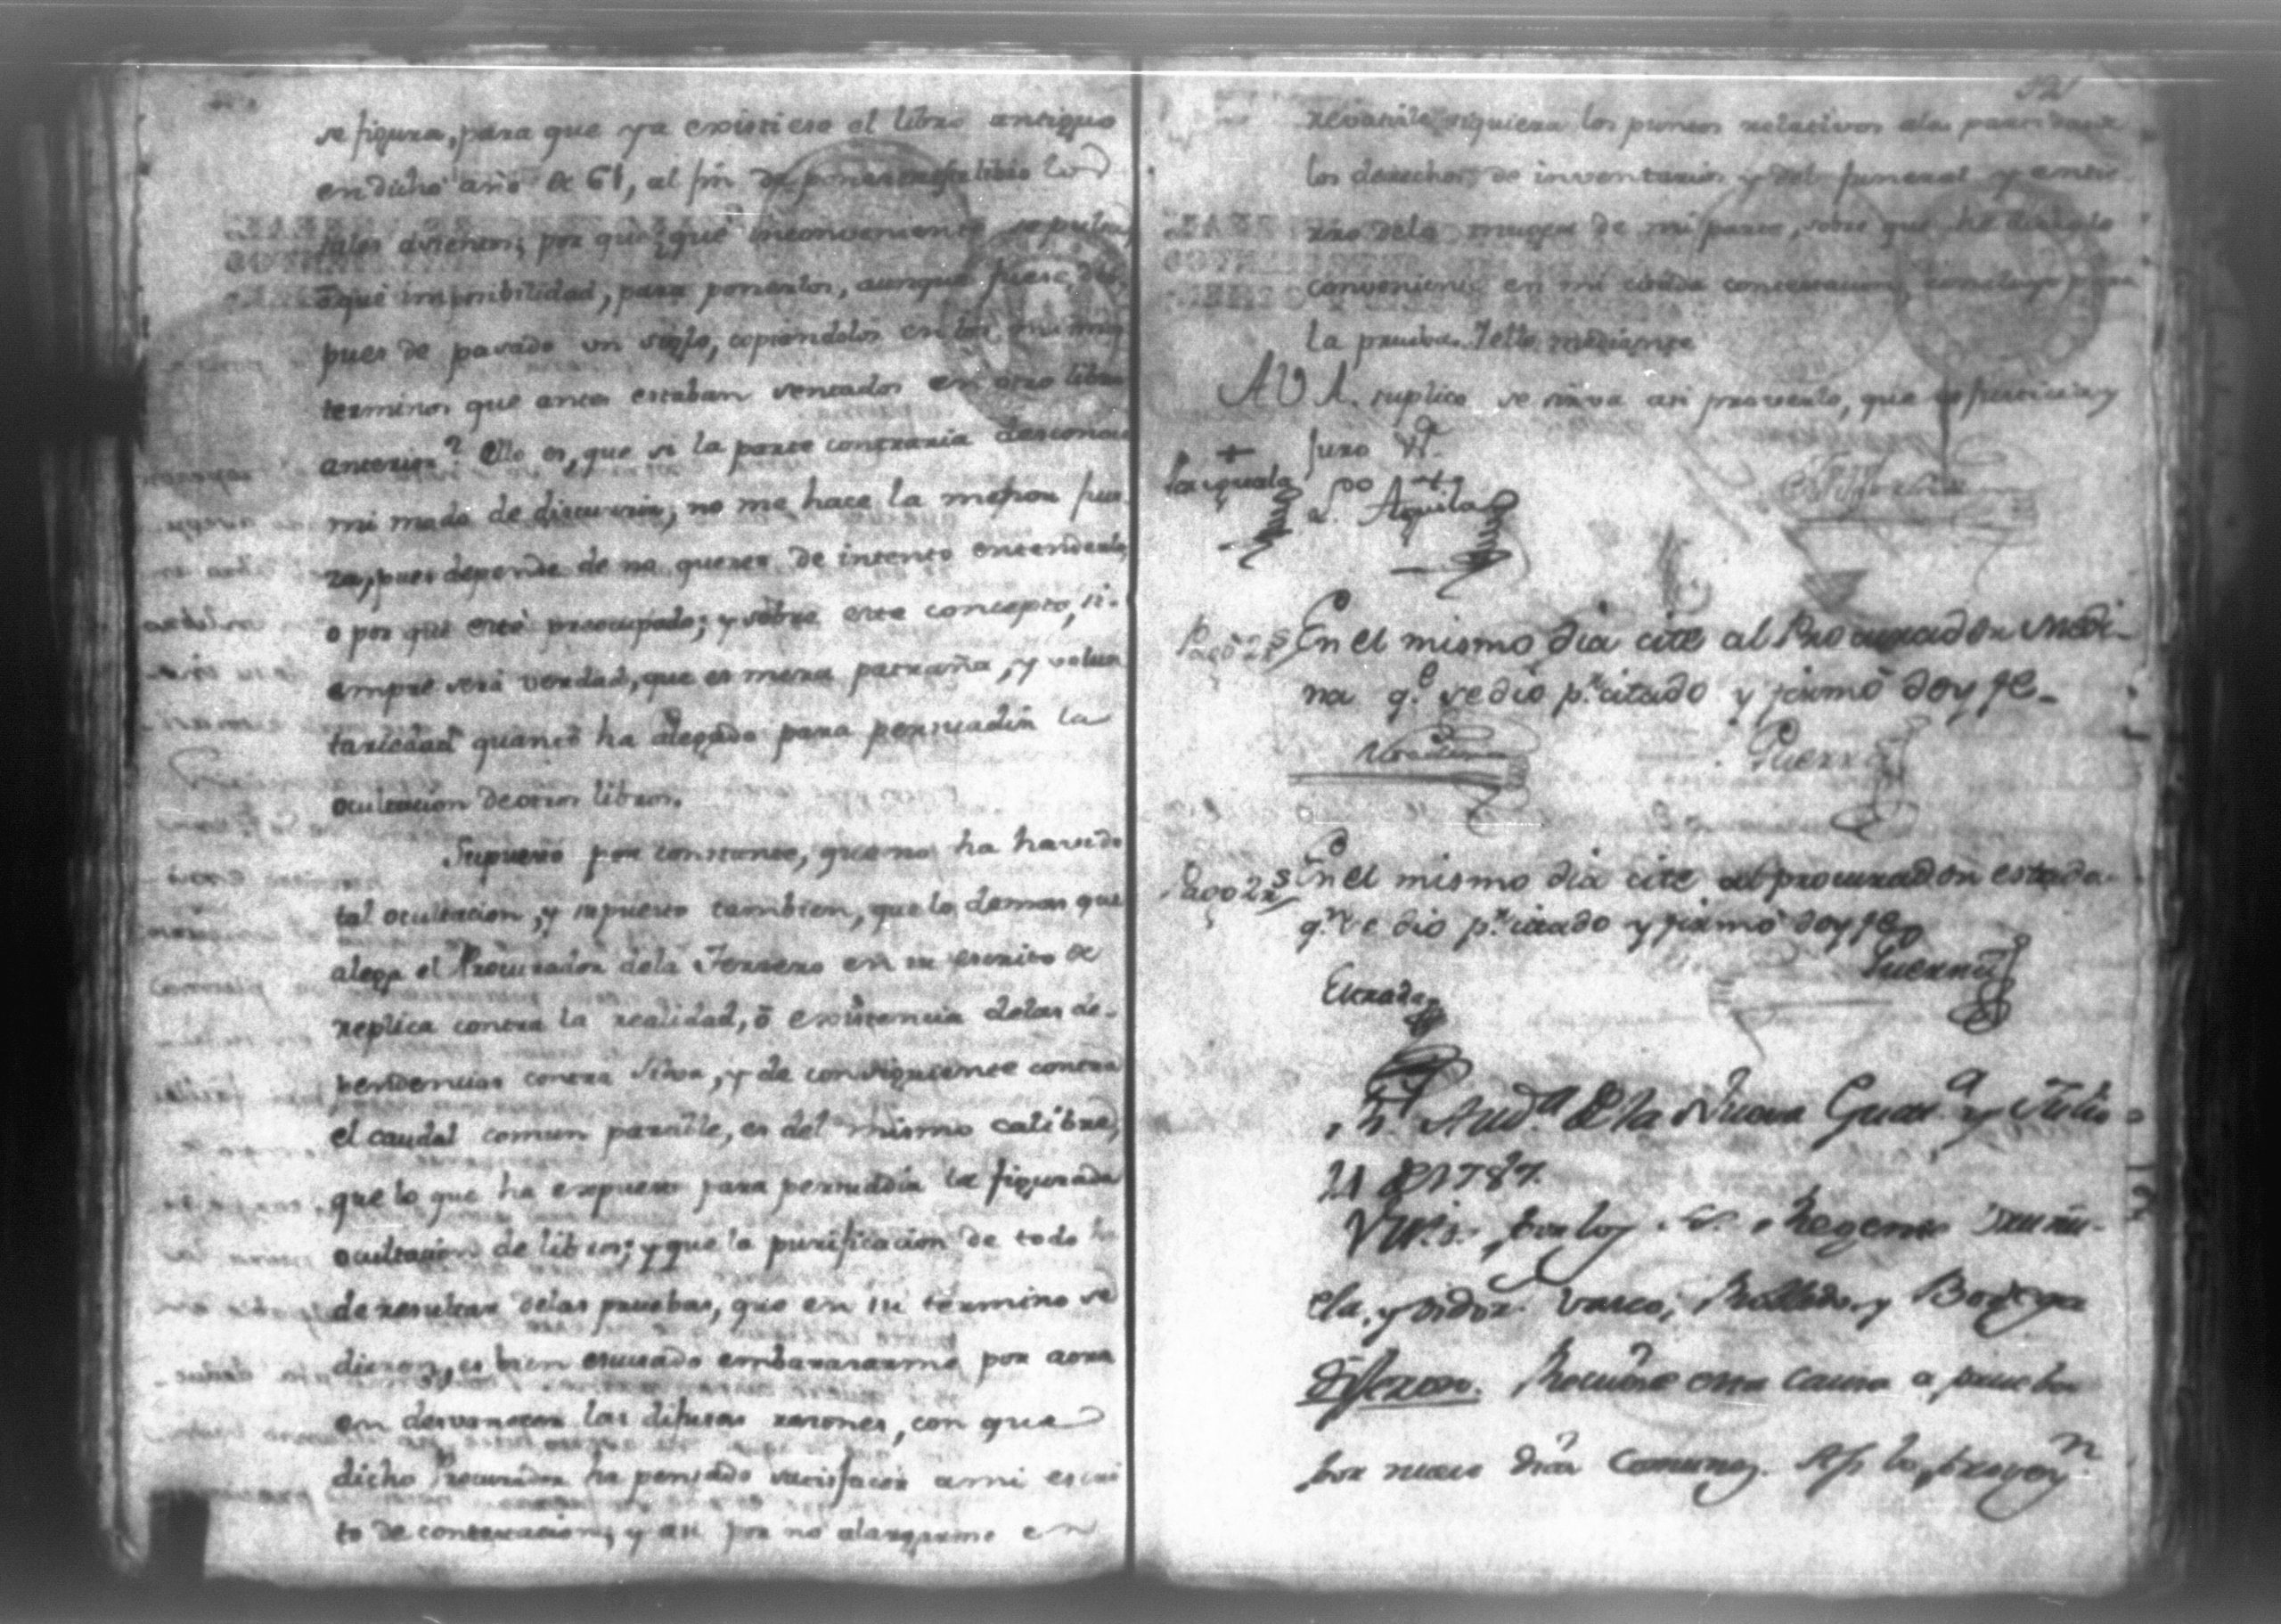 se figura, para que ya existiese el libro antiguo
en dicho año de 61, al fin de poner en este libro los
tales asientos; por que, que inconveniente se pulsa,
o que imposibilidad, para ponerlos, aunque fuese des-
pues de pasado un siglo, copiandolos en los mismos
terminos que antes estaban sentados en otro libro
anterior? Ello es, que si la parte contraria desconoce
mi modo de discurrir, no me hace la menor fuer
za, pues depende de no querer de intento entenderlo,
o por que esté preocupado; y sobre este concepto, si-
empre será verdad, que es mera patraña, y volun
tariedad quanto ha alegado para persuadir la
ocultacion de otros libros.
Supuesto por constante, que no ha havido
tal ocultacion, y supuesto tambien, que lo demas que
alega el Procurador dela Ferrero en su escrito de
replica contra la realidad, ó existencia delas de-
pendencias contra Silva, y de consiguiente contra
el caudal comun partible, es del mismo calibre,
que lo que ha expuesto para persuadir la figurada
ocultacion de libros; y que la purificacion de todo ha
de resultar delas pruebas, que en su termino se
dieren, es bien escusado embarazarme por aora
en desvanecer las difusas razones, con que
dicho Procurador ha pensado satisfacer a mi escri
to de contestacion, y asi por no alargarme en
siquiera los puntos relativos ala
los derechos de inventarios y del funeral y entie
rro dela muger de mi parte, sobre que he
conveniente en mi citada contestacion, concluyo para
la prueba. Y ello mediante
A V A. suplico se sirva asi proveerlo, que es justicia y
Juro &ª.
Pasquala
Do. Aguila
Pagó 2 rs En el mismo dia cité al Procurador Medi-
na qe. se dio pr. citado y firmó doy fe-
Medina Guerra
Pago 2 rs En el mismo dia cité al procurador estrada
qn se dio pr. citado y firmó doy fe
Guerra
Estrada
Rl. Audª. de la Nueva Guatª. y Julio
21 de 1787.
Vistos, por los SS. Regente
y oidores. Vasco, Robledo, y Bodega
Dijeron. Recibese esta causa a prueba
por nueve dias Comunes. Asi lo, proveyn